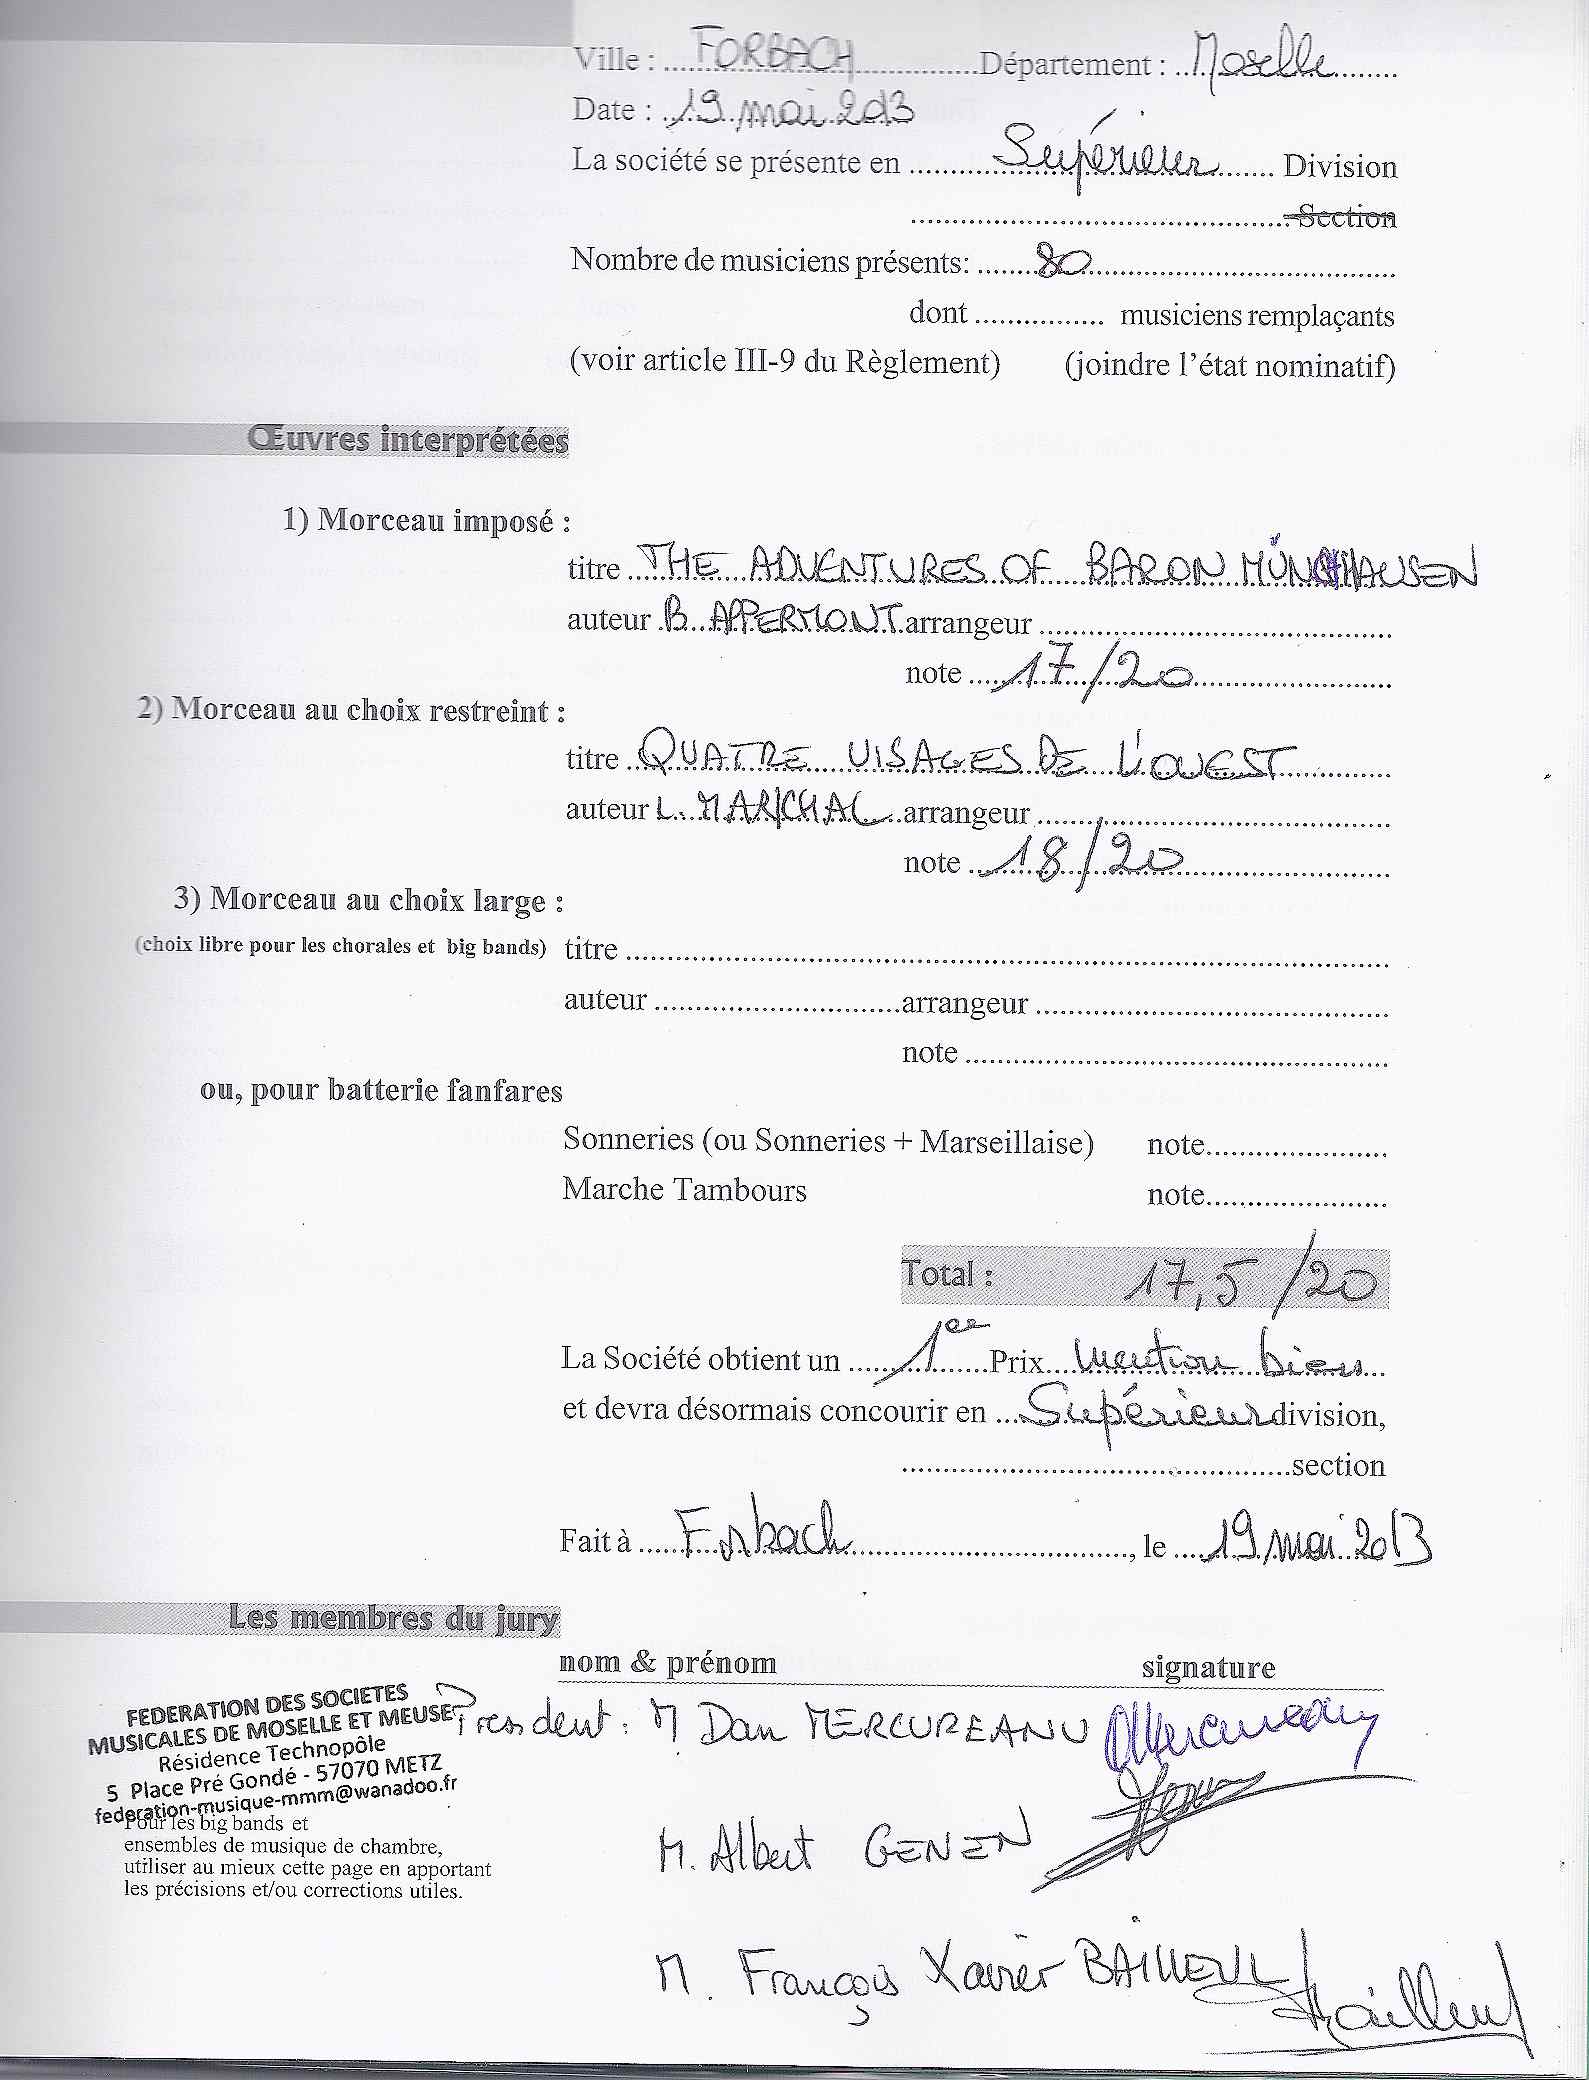 Ville : FORBACH Département : Moselle
Date : 19 mai 2013
La société se présente en Supérieur Division
Section
Nombre de musiciens présents: 80
dont ................ musiciens remplaçants
(voir article III-9 du Règlement) (joindre l'état nominatif)
Œuvres interprétées
1) Morceau imposé :
titre THE ADVENTURES OF BARON MÜNCHHAUSEN
auteur B. APPERMONT arrangeur
note 17/20
2) Morceau au choix restreint :
titre QUATRE VISAGES DE L'OUEST
auteur L. MARKHAL arrangeur
note 18/20
3) Morceau au choix large :
(choix libre pour les chorales et big bands) titre
auteur arrangeur
note
ou, pour batterie fanfares
Sonneries (ou Sonneries + Marseillaise) note
Marche Tambours note
Total : 17,5 /20
La Société obtient un 1er Prix mention bien
et devra désormais concourir en Supérieur division,
section
Fait à Forbach, le 19 mai 2013
Les membres du jury
nom & prénom signature
FEDERATION DES SOCIETES
MUSICALES DE MOSELLE ET MEUSE
Résidence Technopôle
5 Place Pré Gondé - 57070 METZ
federation-musique-mmm@wanadoo.fr
Président : M Dan MERCUREANU
Pour les big bands et
ensembles de musique de chambre,
utiliser au mieux cette page en apportant
les précisions et/ou corrections utiles.
M. Albert GENEN
M. François Xavier BAILLEUL